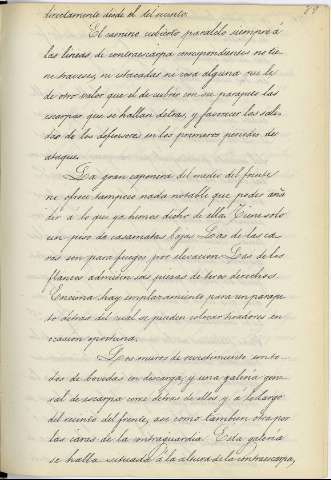 directamente desde el del recinto.
El camino cubierto paralelo siempre á
las lineas de contraescarpa correspondientes no tie-
ne traveses, ni estacadas ni cosa alguna que le
de otro valor que el de cubrir con su parapeto las
escarpas que se hallan detras, y favorecer las sali-
das de los defensores en los primeros periodos del
ataque.
La gran caponera del medio del frente
no ofrece tampoco nada notable que poder aña
dir a lo que ya hemos dicho de ella. Tiene solo
un piso de casamatas bajas. Las de las ca-
ras son para fuegos por elevacion. Las de los
flancos admiten seis piezas de tiros derechos.
Encima hay emplazamiento para un parape-
to detras del cual se pueden colocar tiradores en
ocasion oportuna.
Los muros de revestimiento son to-
dos de bovedas en descarga, y una galeria gene-
ral de escarpa corre detras de ellos y a lo largo
del recinto del frente, asi como tambien otra por
las caras de la contraguardia. Esta galeria
se halla situada á la altura de la contraescarpa,